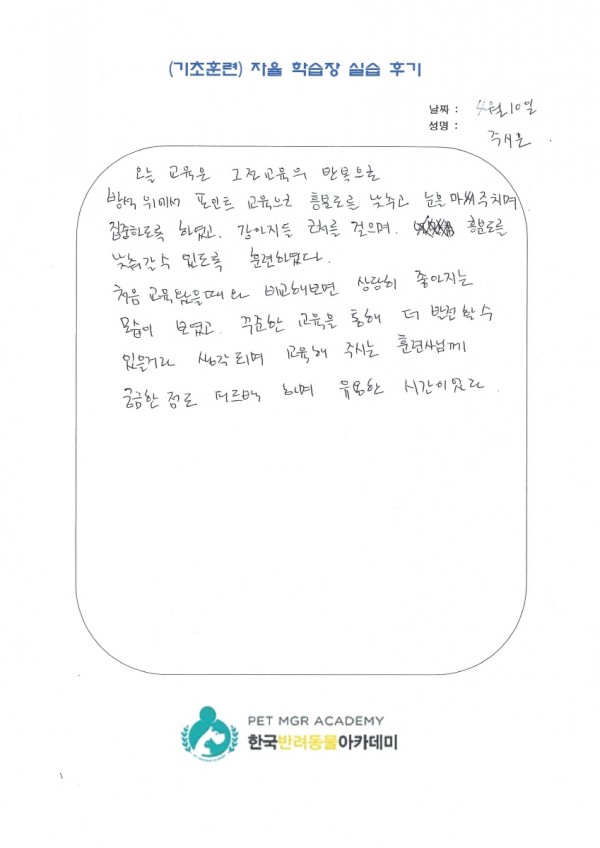 (기초훈련) 자율 학습장 실습 후기
날짜 : 4월 10일
성명 :
오늘 교육은 그전교육의 반복으로
방석 위에서 포인트 교육으로 흥분도를 낮추고 눈을 마주치며
집중하도록 하였고. 강아지들 근처를 걸으며. 흥분도를
낮춰갈수 있도록 훈련하였다.
처음 교육왔을때와 비교해보면 상당히 좋아지는
모습이 보였고. 꾸준한 교육을 통해 더 발전할 수
있을거라 생각되며 교육해 주시는 훈련사님께
궁금한 점도 피드백 하며 유용한 시간이었다.
PET MGR ACADEMY
한국반려동물아카데미